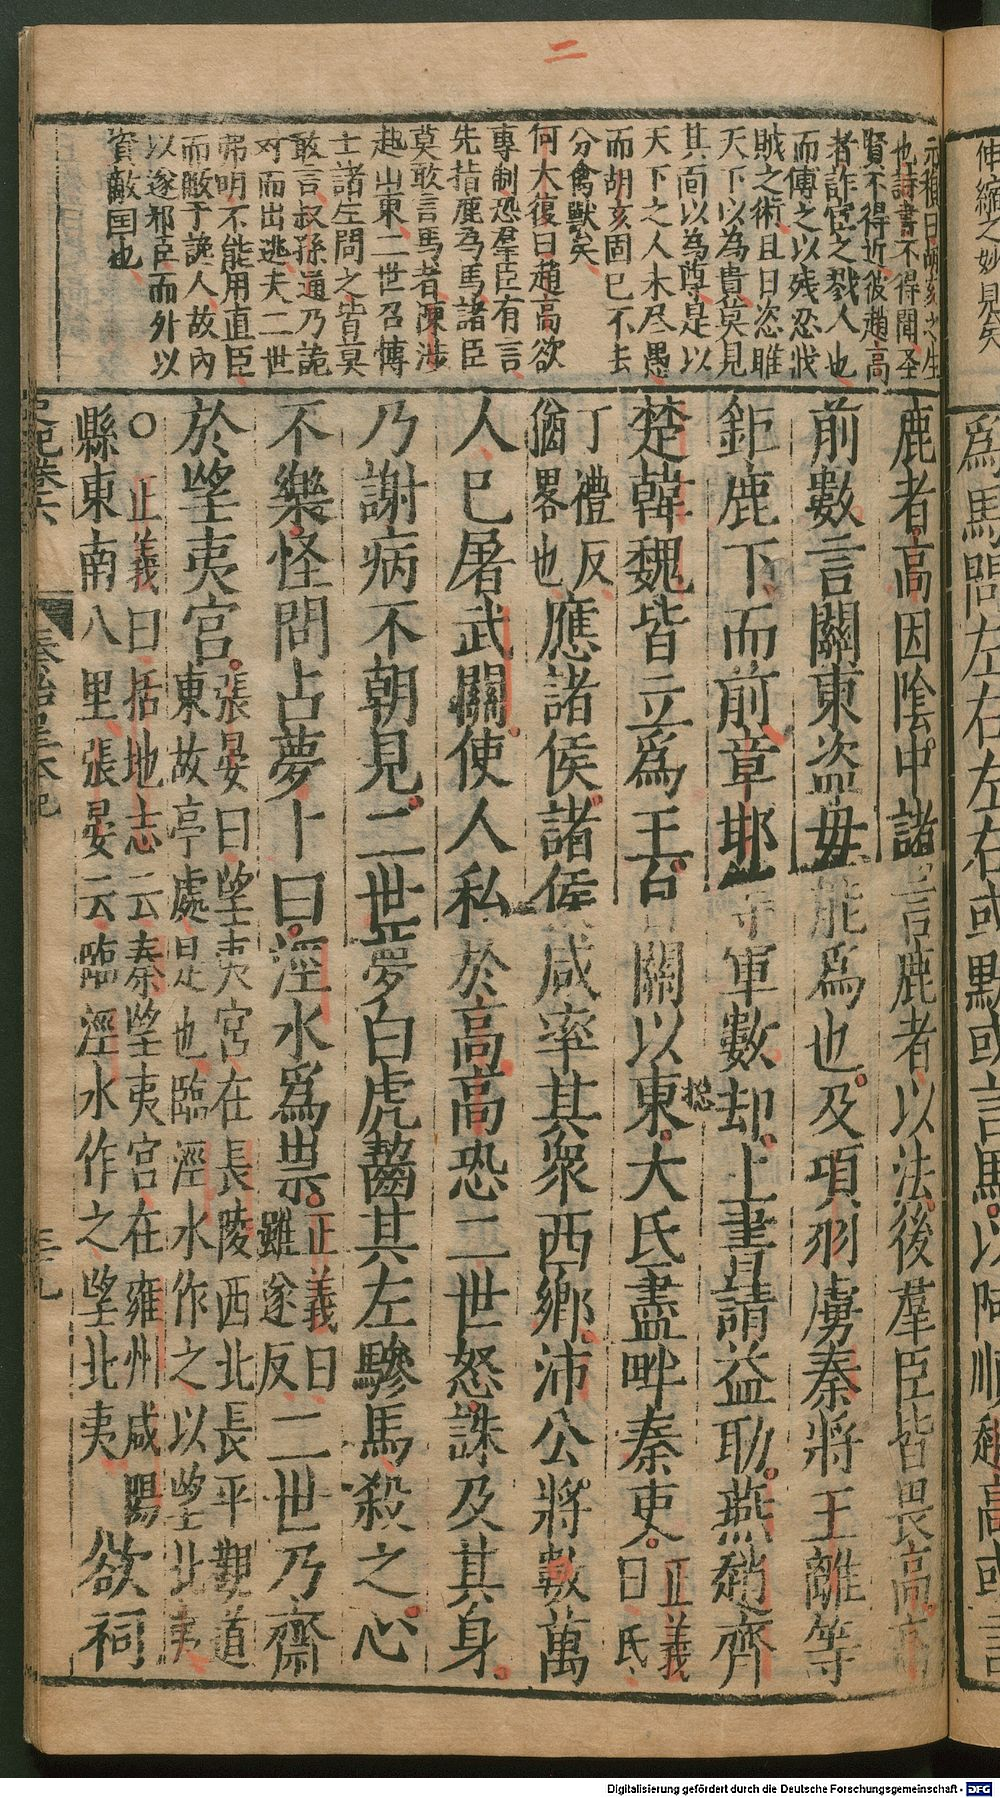 二
元稹曰胡亥之生
也詩書不得聞聖
賢不得近彼趙高
者詐宦之戮人也
而傅之以残忍戕
賊之術且曰恣睢
天下以為貴莫見
其面以為尊是以
天下之人未尽愚
而胡亥固已不去
分禽獸矣
何大復曰趙高欲
專制恐羣臣有言
先指鹿為馬諸臣
莫敢言馬者陳涉
起山東二世召博
士諸生問之皆莫
敢言叔孫通乃詭
对而出逃夫二世
弗明不能用直臣
而敝于讒人故内
以遂邪臣而外以
資敵国也
鹿者高因陰中諸言鹿者以法後羣臣皆畏高高
前數言關東盗毋能爲也及項羽虜秦將王離等
鉅鹿下而前章邯等軍數却上書請益助燕趙齊
楚韓魏皆立爲王自關以東大氐盡畔秦吏正義曰氐
丁禮反猶畧也應諸侯諸侯咸率其衆西鄉沛公將數萬
人已屠武關使人私於高高恐二世怒誅及其身
乃謝病不朝見二世夢白虎齧其左驂馬殺之心
不樂怪問占夢卜曰涇水爲祟正義曰雖遂反二世乃齋
於望夷宮張晏曰望夷宮在長陵西北長平觀道東故亭處是也臨涇水作之以望北夷
○正義曰括地志云秦望夷宮在雍州咸陽縣東南八里張晏云臨涇水作之望北夷欲祠
史記卷六 秦始皇本紀 三十九
伸縮之妙見矣
爲馬問左右左右或默或言馬以阿順趙高或言
Digitalisierung gefördert durch die Deutsche Forschungsgemeinschaft - DFG